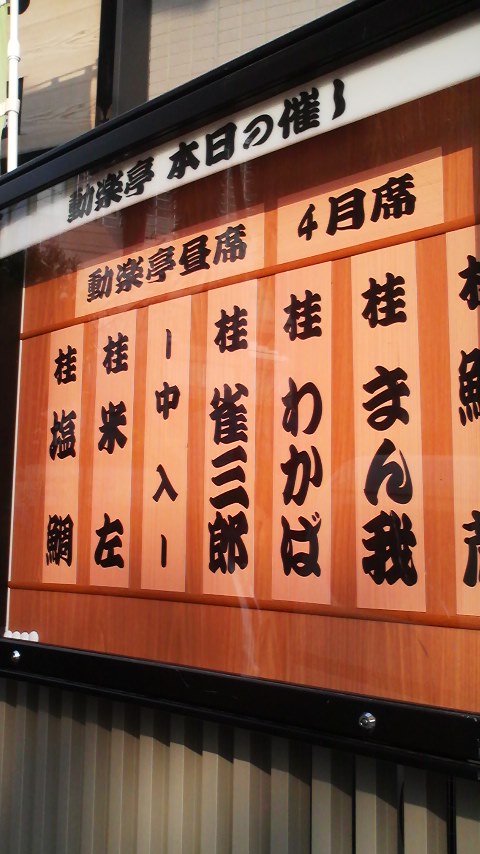 動楽亭 本日の催し
動楽亭昼席 4月席
桂
桂 まん我
桂 わかば
桂 雀三郎
ー中入ー
桂 米左
桂 塩鯛